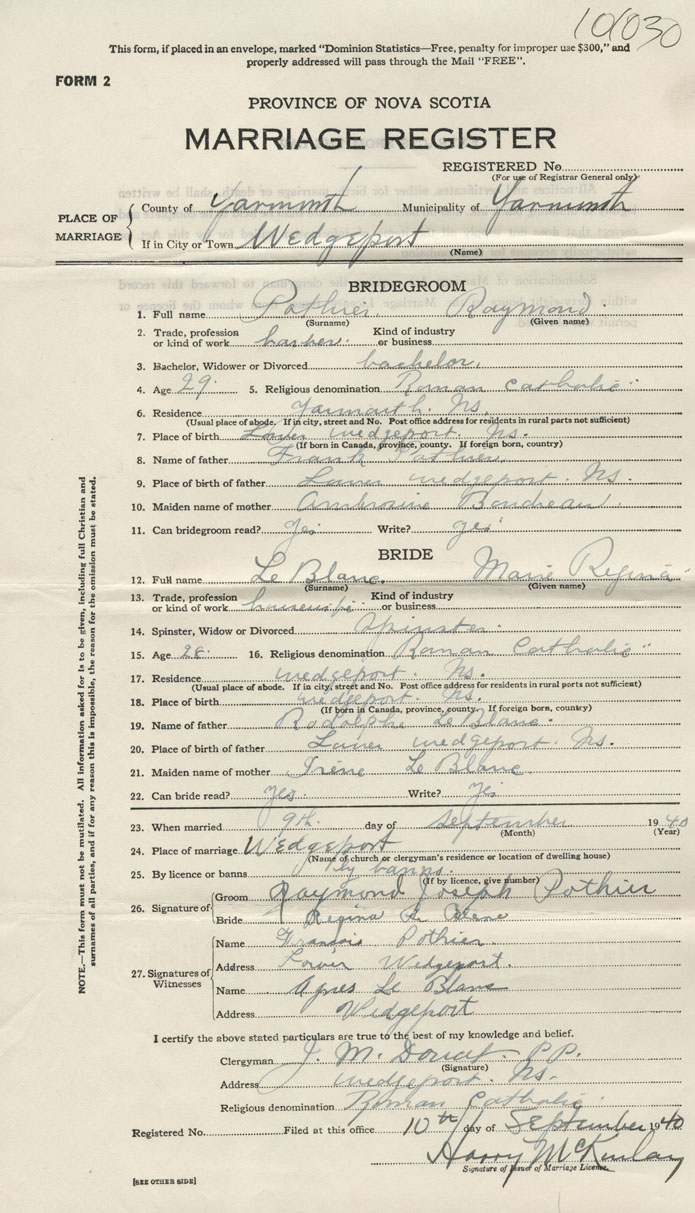 10(030
This form, if placed in an envelope, marked "Dominion Statistics—Free, penalty for improper use $300," and
properly addressed will pass through the Mail "FREE".
FORM 2
PROVINCE OF NOVA SCOTIA
MARRIAGE REGISTER
REGISTERED No.
(For use of Registrar General only)
PLACE OF MARRIAGE
County of Yarmouth Municipality of Yarmouth
If in City or Town Wedgeport
(Name)
BRIDEGROOM
1. Full name Pothier Raymond
(Surname) (Given name)
2. Trade, profession or kind of work barber. Kind of industry or business
3. Bachelor, Widower or Divorced bachelor.
4. Age 29. 5. Religious denomination Roman Catholic
6. Residence Yarmouth. Ns.
(Usual place of abode. If in city, street and No. Post office address for residents in rural parts not sufficient)
7. Place of birth Lower wedgeport. Ns.
(If born in Canada, province, county. If foreign born, country)
8. Name of father Frank Pothier.
9. Place of birth of father Lower wedgeport. Ns.
10. Maiden name of mother Ambroisine Boudreau.
11. Can bridegroom read? Yes Write? yes
BRIDE
12. Full name Le Blanc. Marie Regina
(Surname) (Given name)
13. Trade, profession or kind of work Kind of industry or business
14. Spinster, Widow or Divorced Spinster.
15. Age 28. 16. Religious denomination Roman Catholic
17. Residence wedgeport. Ns.
(Usual place of abode. If in city, street and No. Post office address for residents in rural parts not sufficient)
18. Place of birth wedgeport. Ns.
(If born in Canada, province, county. If foreign born, country)
19. Name of father Rodolphe Le Blanc.
20. Place of birth of father Lower wedgeport. Ns.
21. Maiden name of mother Irène Le Blanc.
22. Can bride read? yes. Write? yes
23. When married 9th. day of September 1940
(Month) (Year)
24. Place of marriage Wedgeport
(Name of church or clergyman's residence or location of dwelling house)
25. By licence or banns by banns.
(If by licence, give number)
26. Signature of
Groom Raymond Joseph Pothier
Bride Regina Le Blanc
27. Signatures of Witnesses
Name François Pothier.
Address Lower Wedgeport.
Name Agnes Le Blanc
Address Wedgeport
I certify the above stated particulars are true to the best of my knowledge and belief.
Clergyman J. M. P.P.
(Signature)
Address wedgeport. Ns.
Religious denomination Roman Catholic.
Registered No. Filed at this office 10th day of September 1940
Harry McKinlay
Signature of Issuer of Marriage License.
[SEE OTHER SIDE]
NOTE.—This form must not be mutilated. All information asked for is to be given, including full Christian and
surnames of all parties, and if for any reason this is impossible, the reason for the omission must be stated.